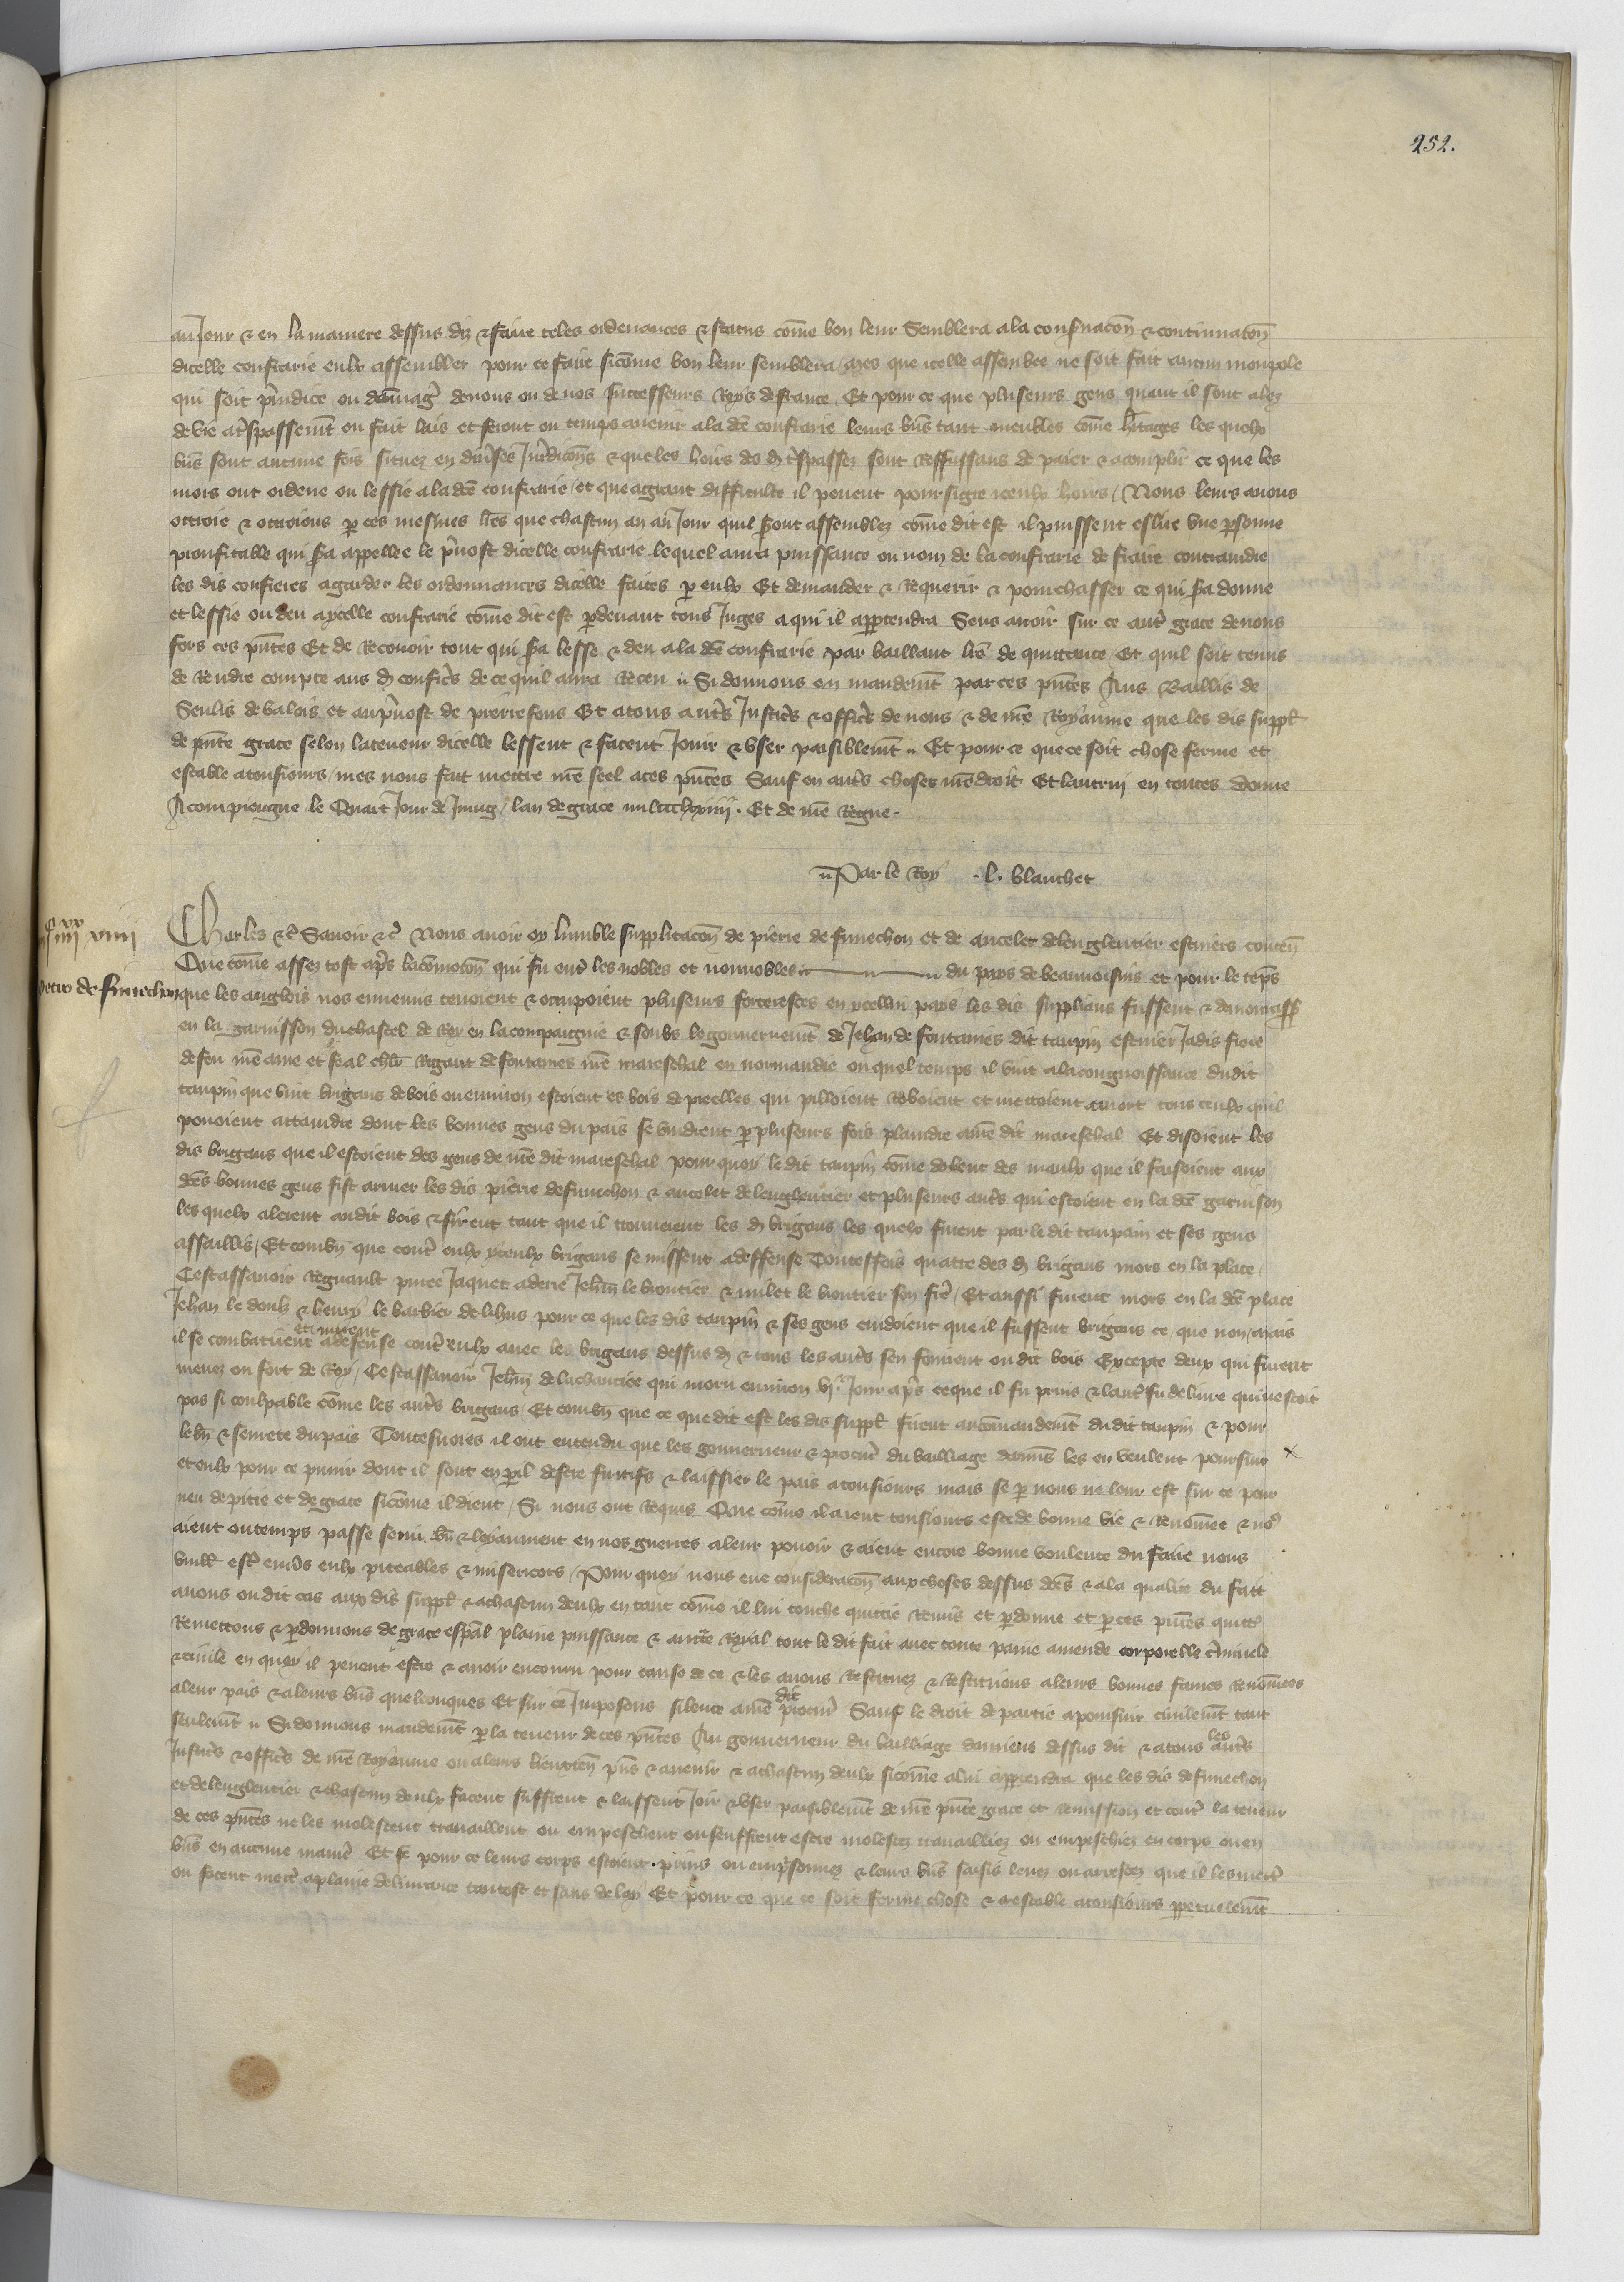 252.
au jour & en la maniere dessus diz & faire teles ordenances & status cõme bon leur semblera a la conſ̃nacõn & continuacõn
dicelle confrarie eulx assembler pour ce faire sicõme bon leur semblera / Mes que icelle assemblee ne soit fait aucun monpole
qui soit p̃iudice ou dõmaĝ de nous ou de nos successeurs Roys de france . Et pour ce que pluseurs gens quant il sont alez
de vie a t̃spassem̃t ou fait lais et feront ou temps avenir a la dc̃e confrarie leurs bñs tant meubles cõme h̃itages les quelx
bñs sont aucune fois situez en div̂ses Jur̃dicõns & que les hoirs des d̃ t̃spassez sont reffusans de paier & acomplir ce que les
mors ont ordene ou lessie a la dc̃e confrarie / et que a grant difficulte il peuent poursigre iceulx hoirs / Nous leurs avons
ottroie & ottroions p̱ ces mesmes lr̃es que chascun an au Jour quil s̃ont assemblez cõme dit est il puissent eslire une p̱sonne
proufitable qui s̃a appellee le p̃vost dicelle confrarie lequel aura puissance ou nom de la confrarie de faire contraindre
les dis confreres a garder les ordonnances dicelle faites p̱ eulx Et demander & requerir & pourchasser ce qui s̃a donne
et lessie ou deu a ycelle confrarie cõme dit est p̱devant touz Juges a qui il app̱tendra Sens avoir sur ce aut̃ grace de nous
fors ces p̃ntes Et de recevoir tout qui s̃a lesse & deu a la dc̃e confrarie par baillant lr̃e de quittance Et quil soit tenus
de rendre compte aus d̃ confrer̃s de ce quil aura receu Si donnons en mandem̃t par ces p̃ntes Aus Baillis de
Senlis de valois et au p̃vost de pierrefons Et a tous aut̃s Justicr̃s & officr̃s de nous & de nr̃e Royaume que les dis suppl̃
de p̃nte grace selon la teneur dicelle lessent & facent joir & user paisiblem̃t Et pour ce que ce soit chose ferme et
estable a tousiours / mes nous fait mettre nr̃e seel a ces p̃ntes Sauf en aut̃s choses nr̃e droit Et lautruy en toutes donne
A compiengne le Quart Jour de Juing / lan de grace mil ccclxiiii . Et de nr̃e Regne .
Par le Roy . l . blanchet
Charles &c̃ Savoir &c̃ Nous avoir oy lumble supplicacõn de pierre de funechon et de ancelet de lenglentier escuiers conteñ
Que cõme assez tost ap̃s la cõmocõn qui fu ent̃ les nobles et nonnobles du pays de beauvoisins et pour le tẽps
petro de funechon que les anglois nos ennemis tenoient & occupoient pluseurs forteresces en ycellui pays les dis supplians fussent & demourass̃
en la garnisson du chastel de Roy en la compaignie & soubz le gouvernem̃t de Jehan de fontaines dit taupin escuier jadis frere
de feu nr̃e ame et feal chl̃r Rigaut de fontaines nr̃e mareschal en normandie ou quel temps il vint a la congnoissance du dit
taupin que vint brigans de bois ou environ estoient es bois de preelles qui pilloient roboient et mettoient a mort tous ceulx quil
povoient attaindre dont les bonnes gens du pais se vindrent p̱ pluseurs fois plaindre a nr̃e dit mareschal Et disoient les
dis brigans que il estoient des gens de nr̃e dit mareschal pour quoy le dit taupin cõme dolent des maulx que il faisoient aux
dc̃es bonnes gens fist armer les dis pierre de funechon & ancelet de lenglentier et pluseurs aut̃s qui estoient en la dc̃e garnison
les quelx alerent au dit bois & firent tant que il trouverent les d̃ brigans les quelx furent par le dit taupain et ses gens
assaillis / Et combñ que cont̃ eulx yceulx brigans se missent a deffense Touteffois quatre des d̃ brigans mors en la place /
Cestassavoir Regnault Jaquet aderie Jehãn le broutier & milet le broutier son fr̃e / Et aussi furent mors en la dc̃e place
Jehan le doulz & henry le barbier de lihus pour ce que les dis taupin & ses gens cuidoient que il fussent brigans ce que non / mais
il se combatirent et mirent a defense cont̃ eulx avec les brigans dessus d̃ & tous les aut̃s sen fouirent ou dit bois Excepte deux qui furent
menez ou fort de Roy / Cestassavoir Jehãn de la chauciee qui moru environ vj. Jour ap̃s ce que il fu prins & laut̃ fu delivre qui nestoit
pas si coulpable cõme les aut̃s brigans / Et combñ que ce que dit est les dis suppl̃ firent au cõmandem̃t du dit taupin & pour
le bñ & seurete du pais Toutesvoies il ont entendu que les gouverneur & procur̃ du bailliage damiẽs les en veulent poursuir
et eulx pour ce punir dont il sont en p̱il destre fuitifs & laissier le pais a tousiours mais se p̱ nous ne leur est sur ce pour
veu de pitie et de grace sicõme il dient / Si nous ont requis Que cõme il aient tousiours este de bonne vie & renõmee & nõ
aient ou temps passe servi bñ & loyaument en nos guerres a leur povoir & aient encore bonne voulente du faire nous
vuill̃ estr̃ env̂s eulx piteables & misericors / Pour quoy nous eue consideracõn aux choses dessus dc̃es & a la qualite du fait
avons ou dit cas aux dis suppl̃ & a chascun deulx en tant cõme il lui touche quittie remis et p̱donne et p̱ ces p̃ntes quitt̃
Remettons & p̱donnons de grace esp̃al plaine puissance & auct̃e Royal tout le dit fait avec toute paine amende corporelle c̃minele
& civile en quoy il peuent estre & avoir encouru pour cause de ce & les avons restituez & restituons a leurs bonnes fames renõmees
a leur pais & a leurs bñs quelconques Et sur ce imposons silence a nr̃e dit procur̃ Sauf le droit de partie a poursuir civilem̃t tant
seulem̃t Si donnons mandem̃t p̱ la teneur de ces p̃ntes Au gouverneur du bailliage damiens dessus dit & a tous les aut̃s
Justicr̃s & officr̃s de nr̃e Royaume ou a leurs lieuxteñ p̃ns & avenir & a chascun deulx sicõme a lui app̱tendra que les dis de funechon
et de lenglentier & chascun deulx facent suffrent & laissent joir & user paisiblem̃t de nr̃e p̃nte grace et remission et cont̃ la teneur
de ces p̃ntes ne les molestent travaillent ou empeschent ou seuffrent estre molestez travailliez ou empeschiez en corps ou en
bñs en aucune manier̃ Et se pour ce leurs corps estoient prins ou emp̃sonnez & leurs bñs saisis levez ou arrestez que il les mett̃
ou facent mett̃ a plaine delivrance tantost et sans delay Et pour ce que ce soit ferme chose & estable a tousiours pp̱etuelem̃t